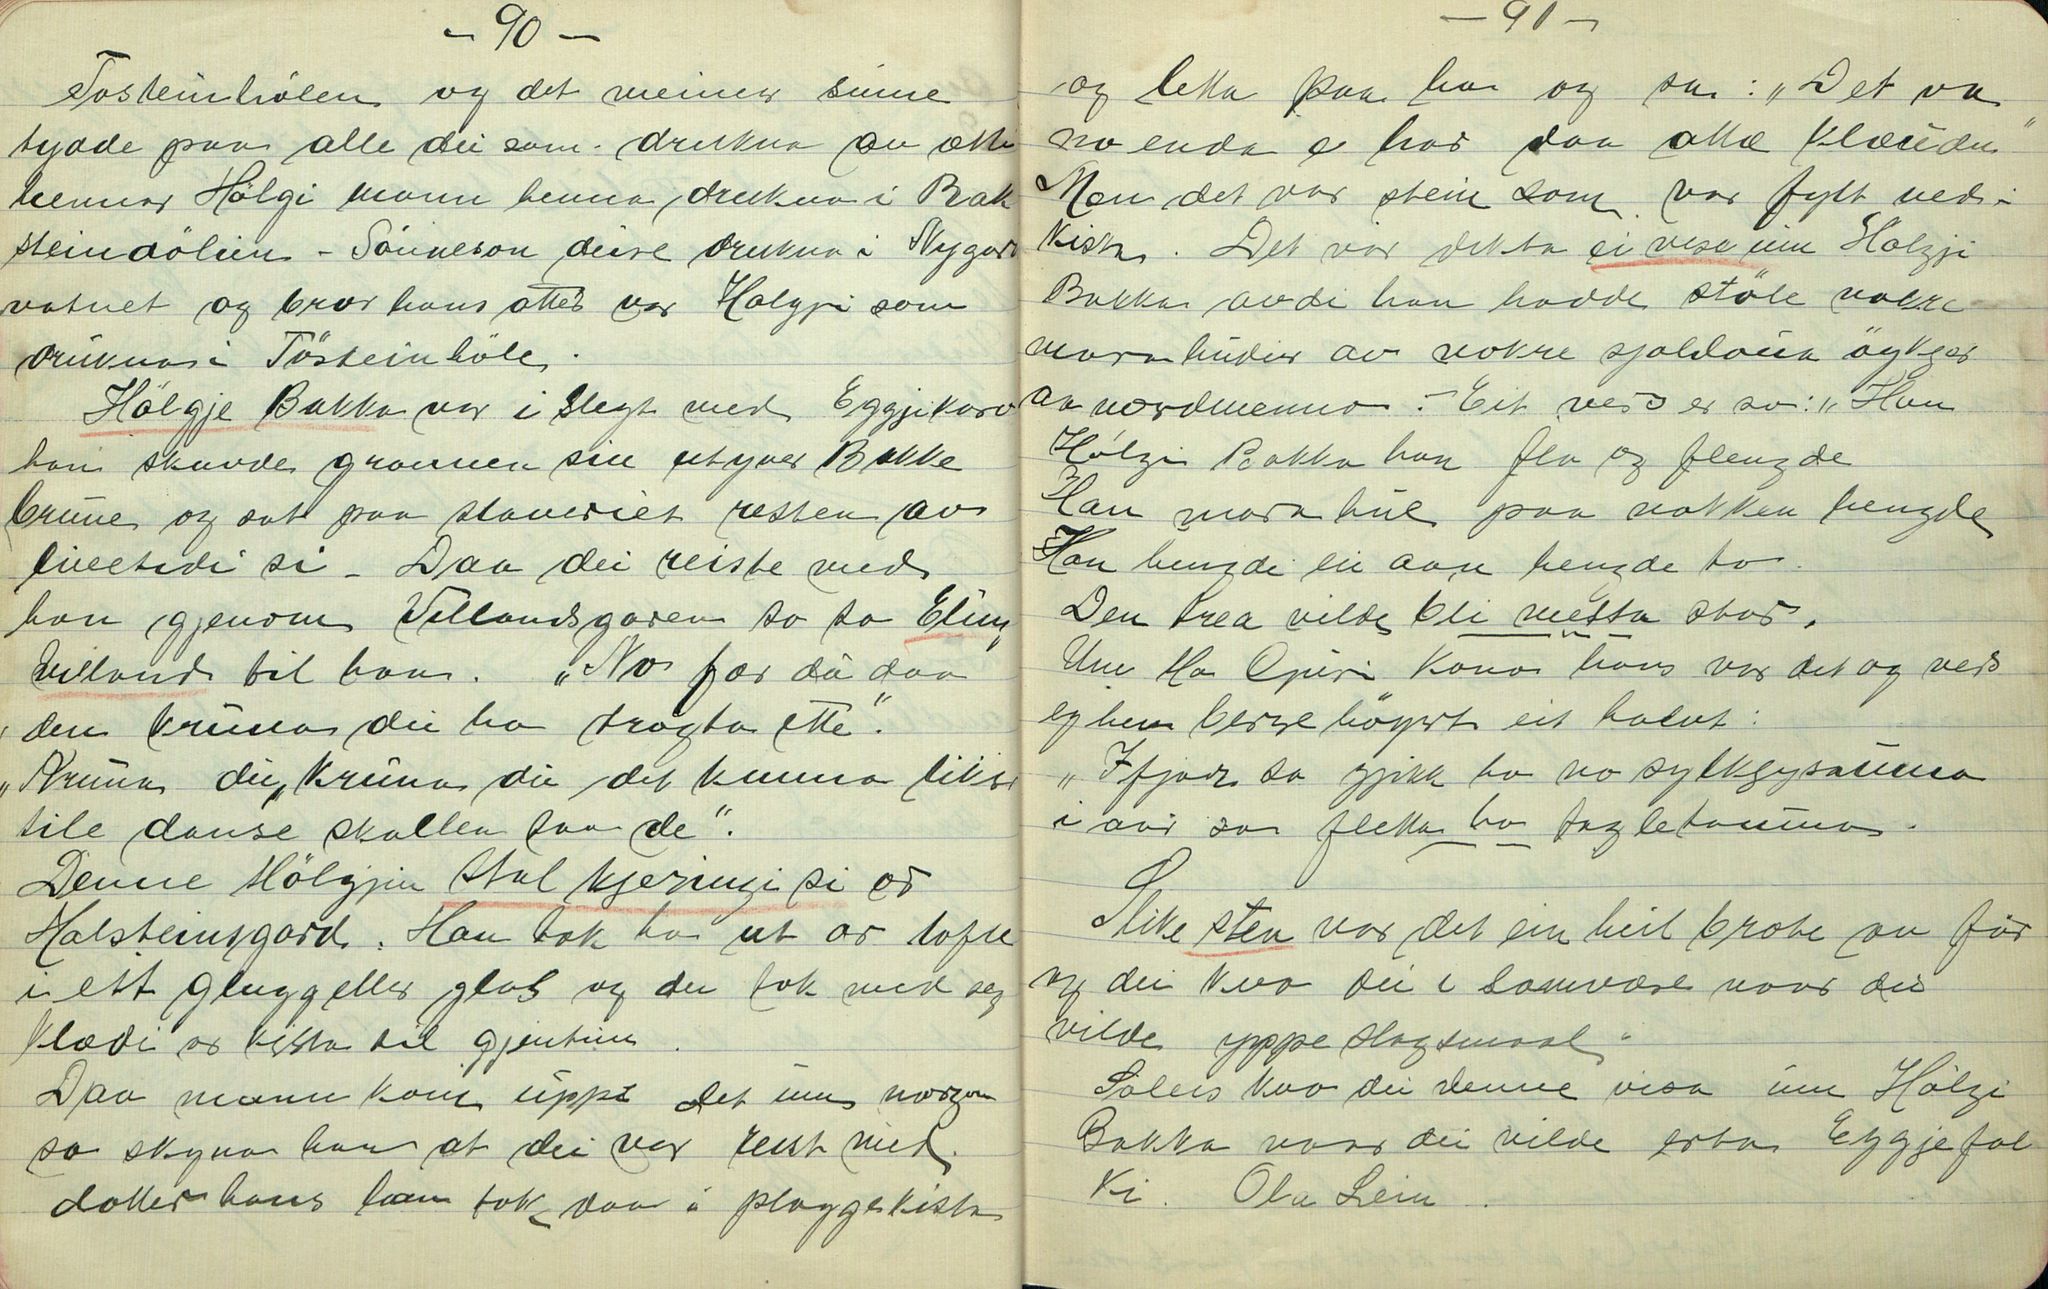 - 90 -
Tosteinhölen og det meiner sume
tydde paa alle dei som drukna av ætti
hennar Hölgi mann henna, drukna i Bak
steindölien - Sönneson deise drukna i Nygards
vatnet og bror hans atter var Hölgje som
drukna i Tösteinhöle.
Hölgje Bakka var i slegt med Eggjikara
han skuvde grannen sin utyver Bakke
brune og sat paa slaveriet resten av
livetidi si - Daa dei reiste med
han gjenom Villandsgaren so sa Elling
Villand til han. "No fær du daa
den kruna du ha tragta ette".
"Kruna du, kruna du det kunna likso
tile danse skallen taa de".
Denne Hölgjin stal kjeringi si or
Halsteinsgard. Han tok ho ut or lofte
i ett glugg eller glas og dei tok med seg
klædi or kista til gjentun.
Daa mann kom uppi det um morgon
so skyna han at dei var reist med
dotter hans han tok daa i plaggekista
- 91 -
og letta paa ho og sa: "Det va
no enda e har daa atta klæudn"
Men det var stein som var fylt ned i
kista. Det var dikta ei visa um Hölgji
Bakka avdi han hadde stöle nokre
marahuder av nokre sjaldaua öykjer
aa nordmenna. - Eit vers er so: "Han
Hölgi Bakka han fla og flengde
Han marahue paa nakken hengde
Han hengde ei aan hengde to
Den trea vilde bli mesta stor.
Um Ho Guri kona hans var det og vers
eg hev berre höyrt eit halvt:
"I fjor so gjikk ho no sylkjysauma
i aar so flekka ho tagletauma.
Slike sten var det ein heil brote av för
og dei kva dei i samvære naar dei
vilde yppe slagsmaal.
Soleis kva dei denne visa um Hölgi
Bakka naar dei vilde erta Eggjefol
ki. Ola Lein.